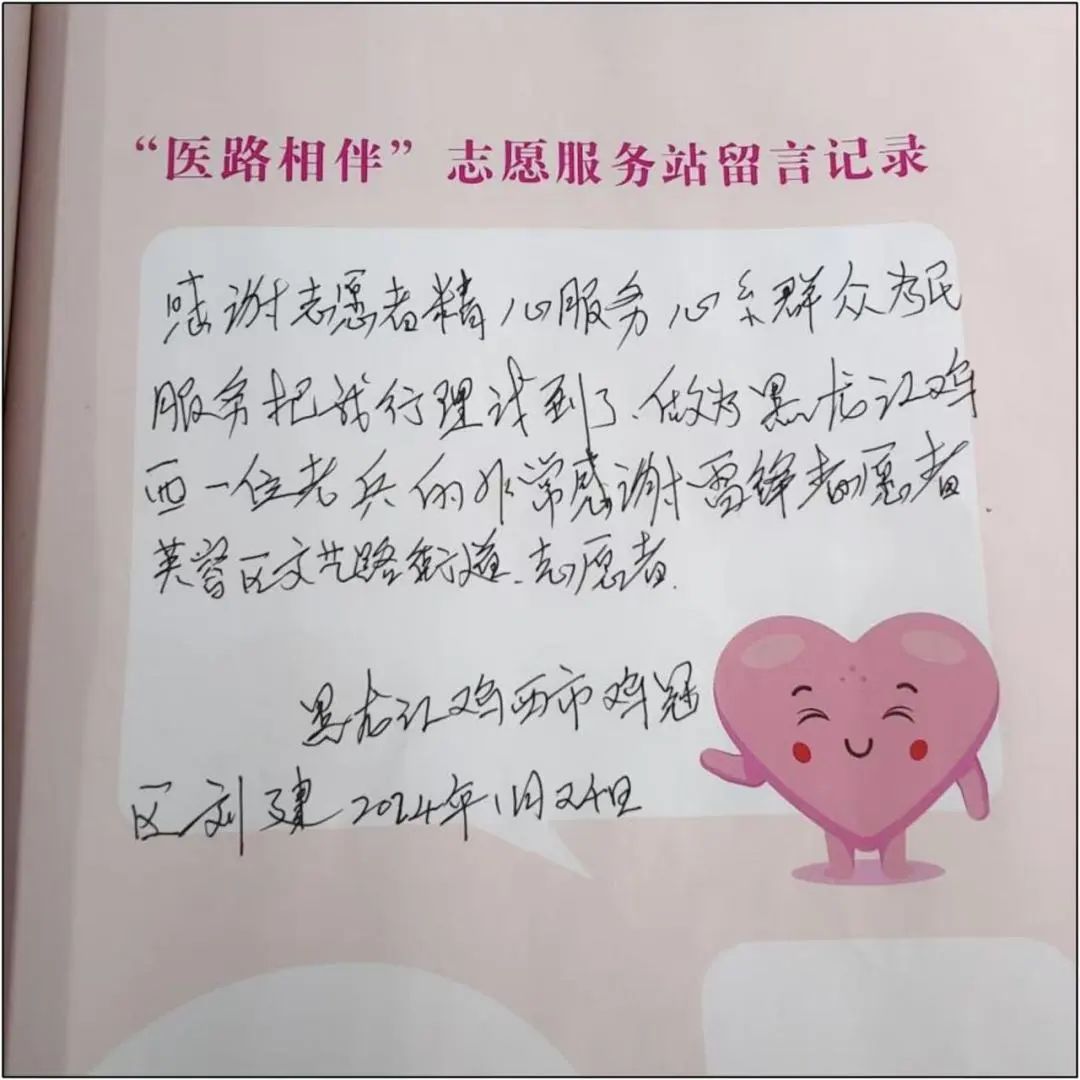 “医路相伴”志愿服务站留言记录
感谢志愿者精心服务心系群众为民
服务把我行理找到了、做为黑龙江鸡
西一位老兵的非常感谢雷锋志愿者
芙蓉区文艺路街道、志愿者.
黑龙江鸡西市鸡冠
区刘建2024年1月24日